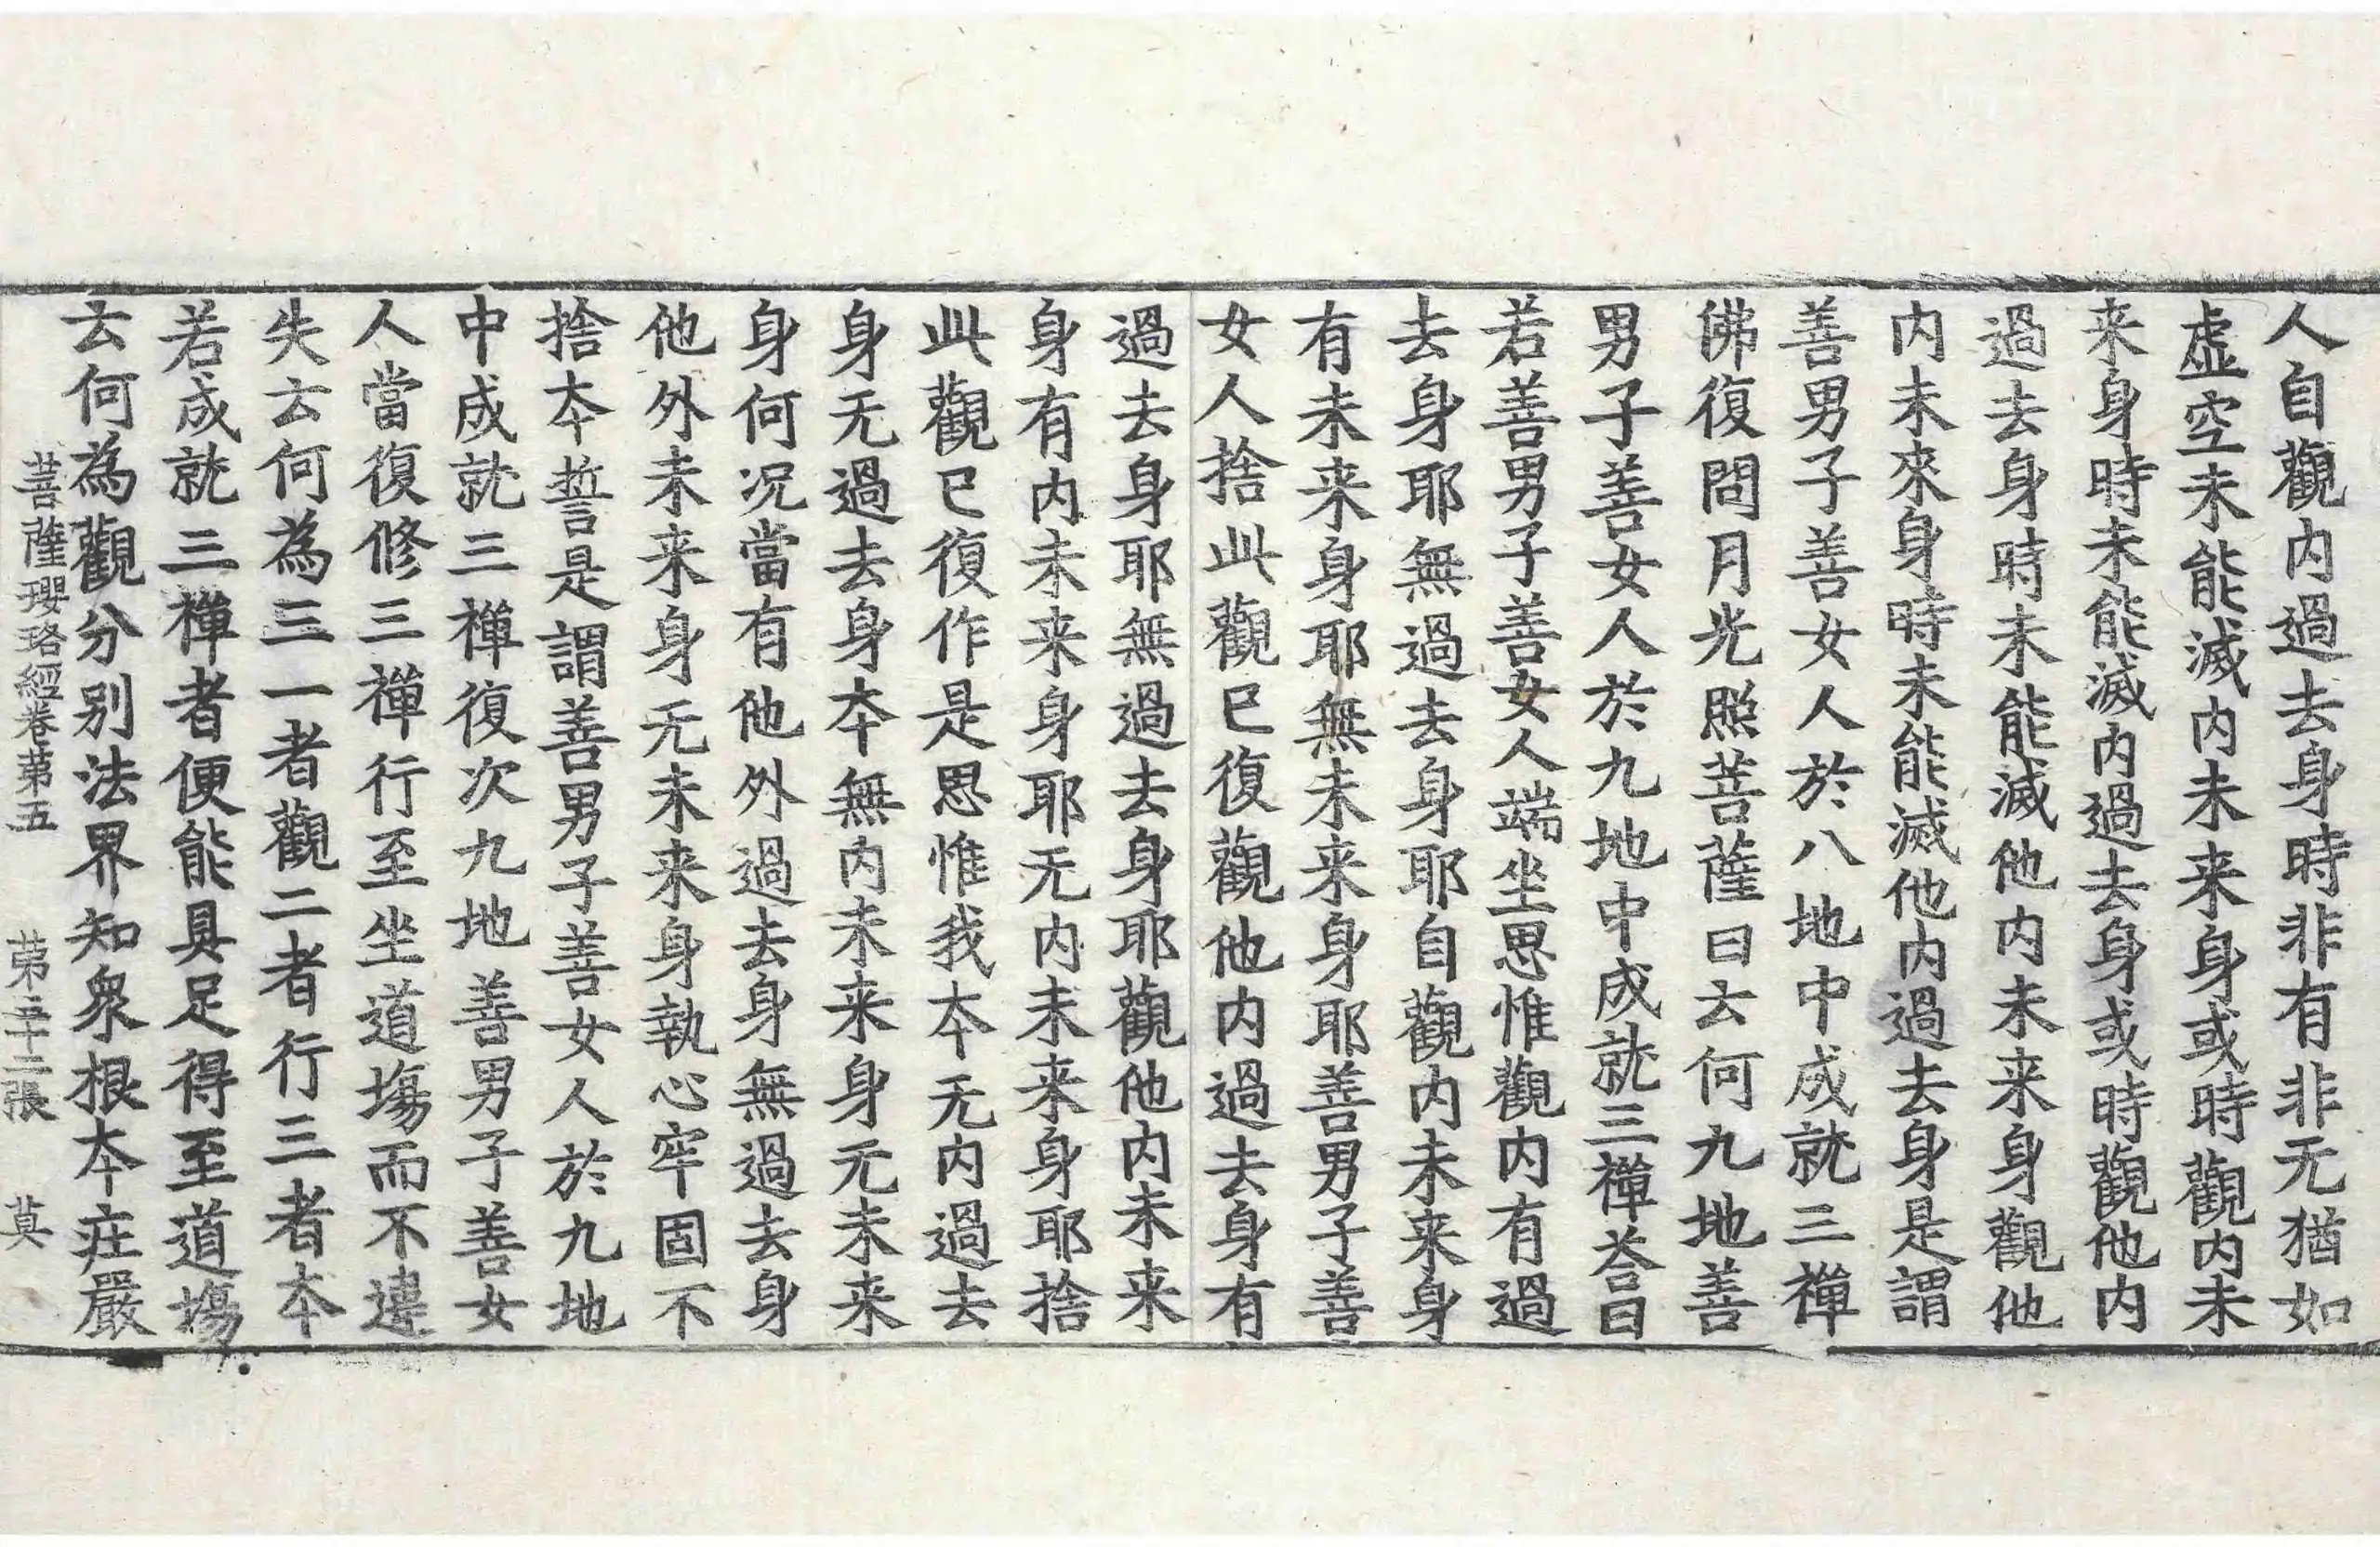 人自觀内過去身時非有非无猶如
虛空未能滅内未来身或時觀内未
来身時未能滅内過去身或時觀他内
過去身時未能滅他内未来身觀他
内未來身時未能滅他内過去身是謂
善男子善女人於八地中成就三禪
佛復問月光照菩薩曰云何九地善
男子善女人於九地中成就三禪荅曰
若善男子善女人端坐思惟觀内有過
去身耶無過去身耶自觀内未来身
有未来身耶無未来身耶善男子善
女人捨此觀已復觀他内過去身有
過去身耶無過去身耶觀他内未来
身有内未来身耶无内未来身耶捨
此觀已復作是思惟我本无内過去
身无過去身本無内未来身无未来
身何况當有他外過去身無過去身
他外未来身无未来身執心牢固不
捨本誓是謂善男子善女人於九地
中成就三禪復次九地善男子善女
人當復修三禪行至坐道場而不違
失云何為三一者觀二者行三者本
若成就三禪者便能具足得至道場
云何為觀分别法界知衆根本莊嚴
菩薩瓔珞經卷第五 第五十二張 莫